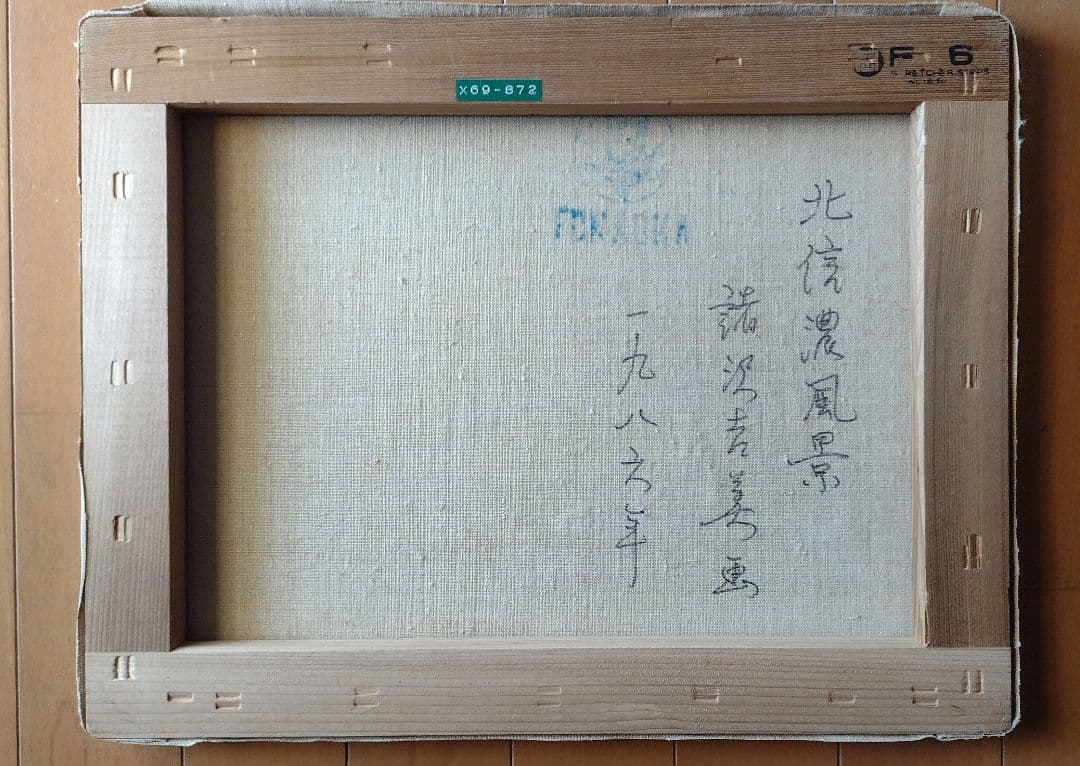 F 6
X69-872
北信濃風景
諸沢吉美画
一九八六年